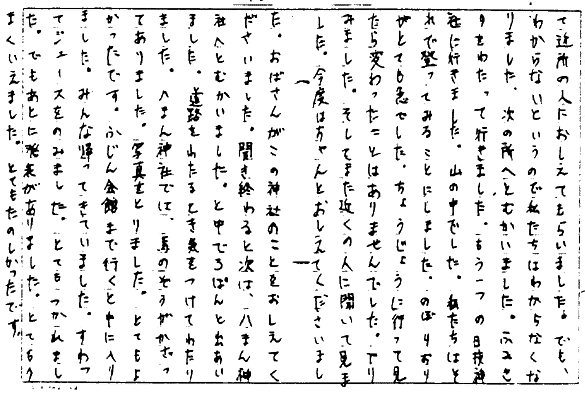 て近所の人におしえてもらいました。でも、
わからないというので私たちはわからなくな
りました。次の所へとむかいました。ふみき
りをわたって行きました。もう一つの日枝神
社に行きました。山の中でした。私たちはそ
れで登ってみることにしました。のぼりおり
がとても急でした。ちょうじょうに行って見
たら変わったことはありませんでした。下り
みました。そしてまた近くの人に聞いて見ま
した。今度はちゃんとおしえてくださいまし
た。おばさんがこの神社のことをおしえてく
ださいました。聞き終わると次は、八まん神
社へとむかいました。と中でろぱんと出あい
ました。道路をわたるとき気をつけてわたり
ました。八まん神社では、馬のぞうがかざっ
てありました。写真をとりました。とてもよ
かったです。ふじん会館まで行くと中に入り
ました。みんな帰ってきていました。すわっ
てジュースをのみました。とてもつかれまし
た。でもあとに発表がありました。とてもう
まくいえました。とてもたのしかったです。